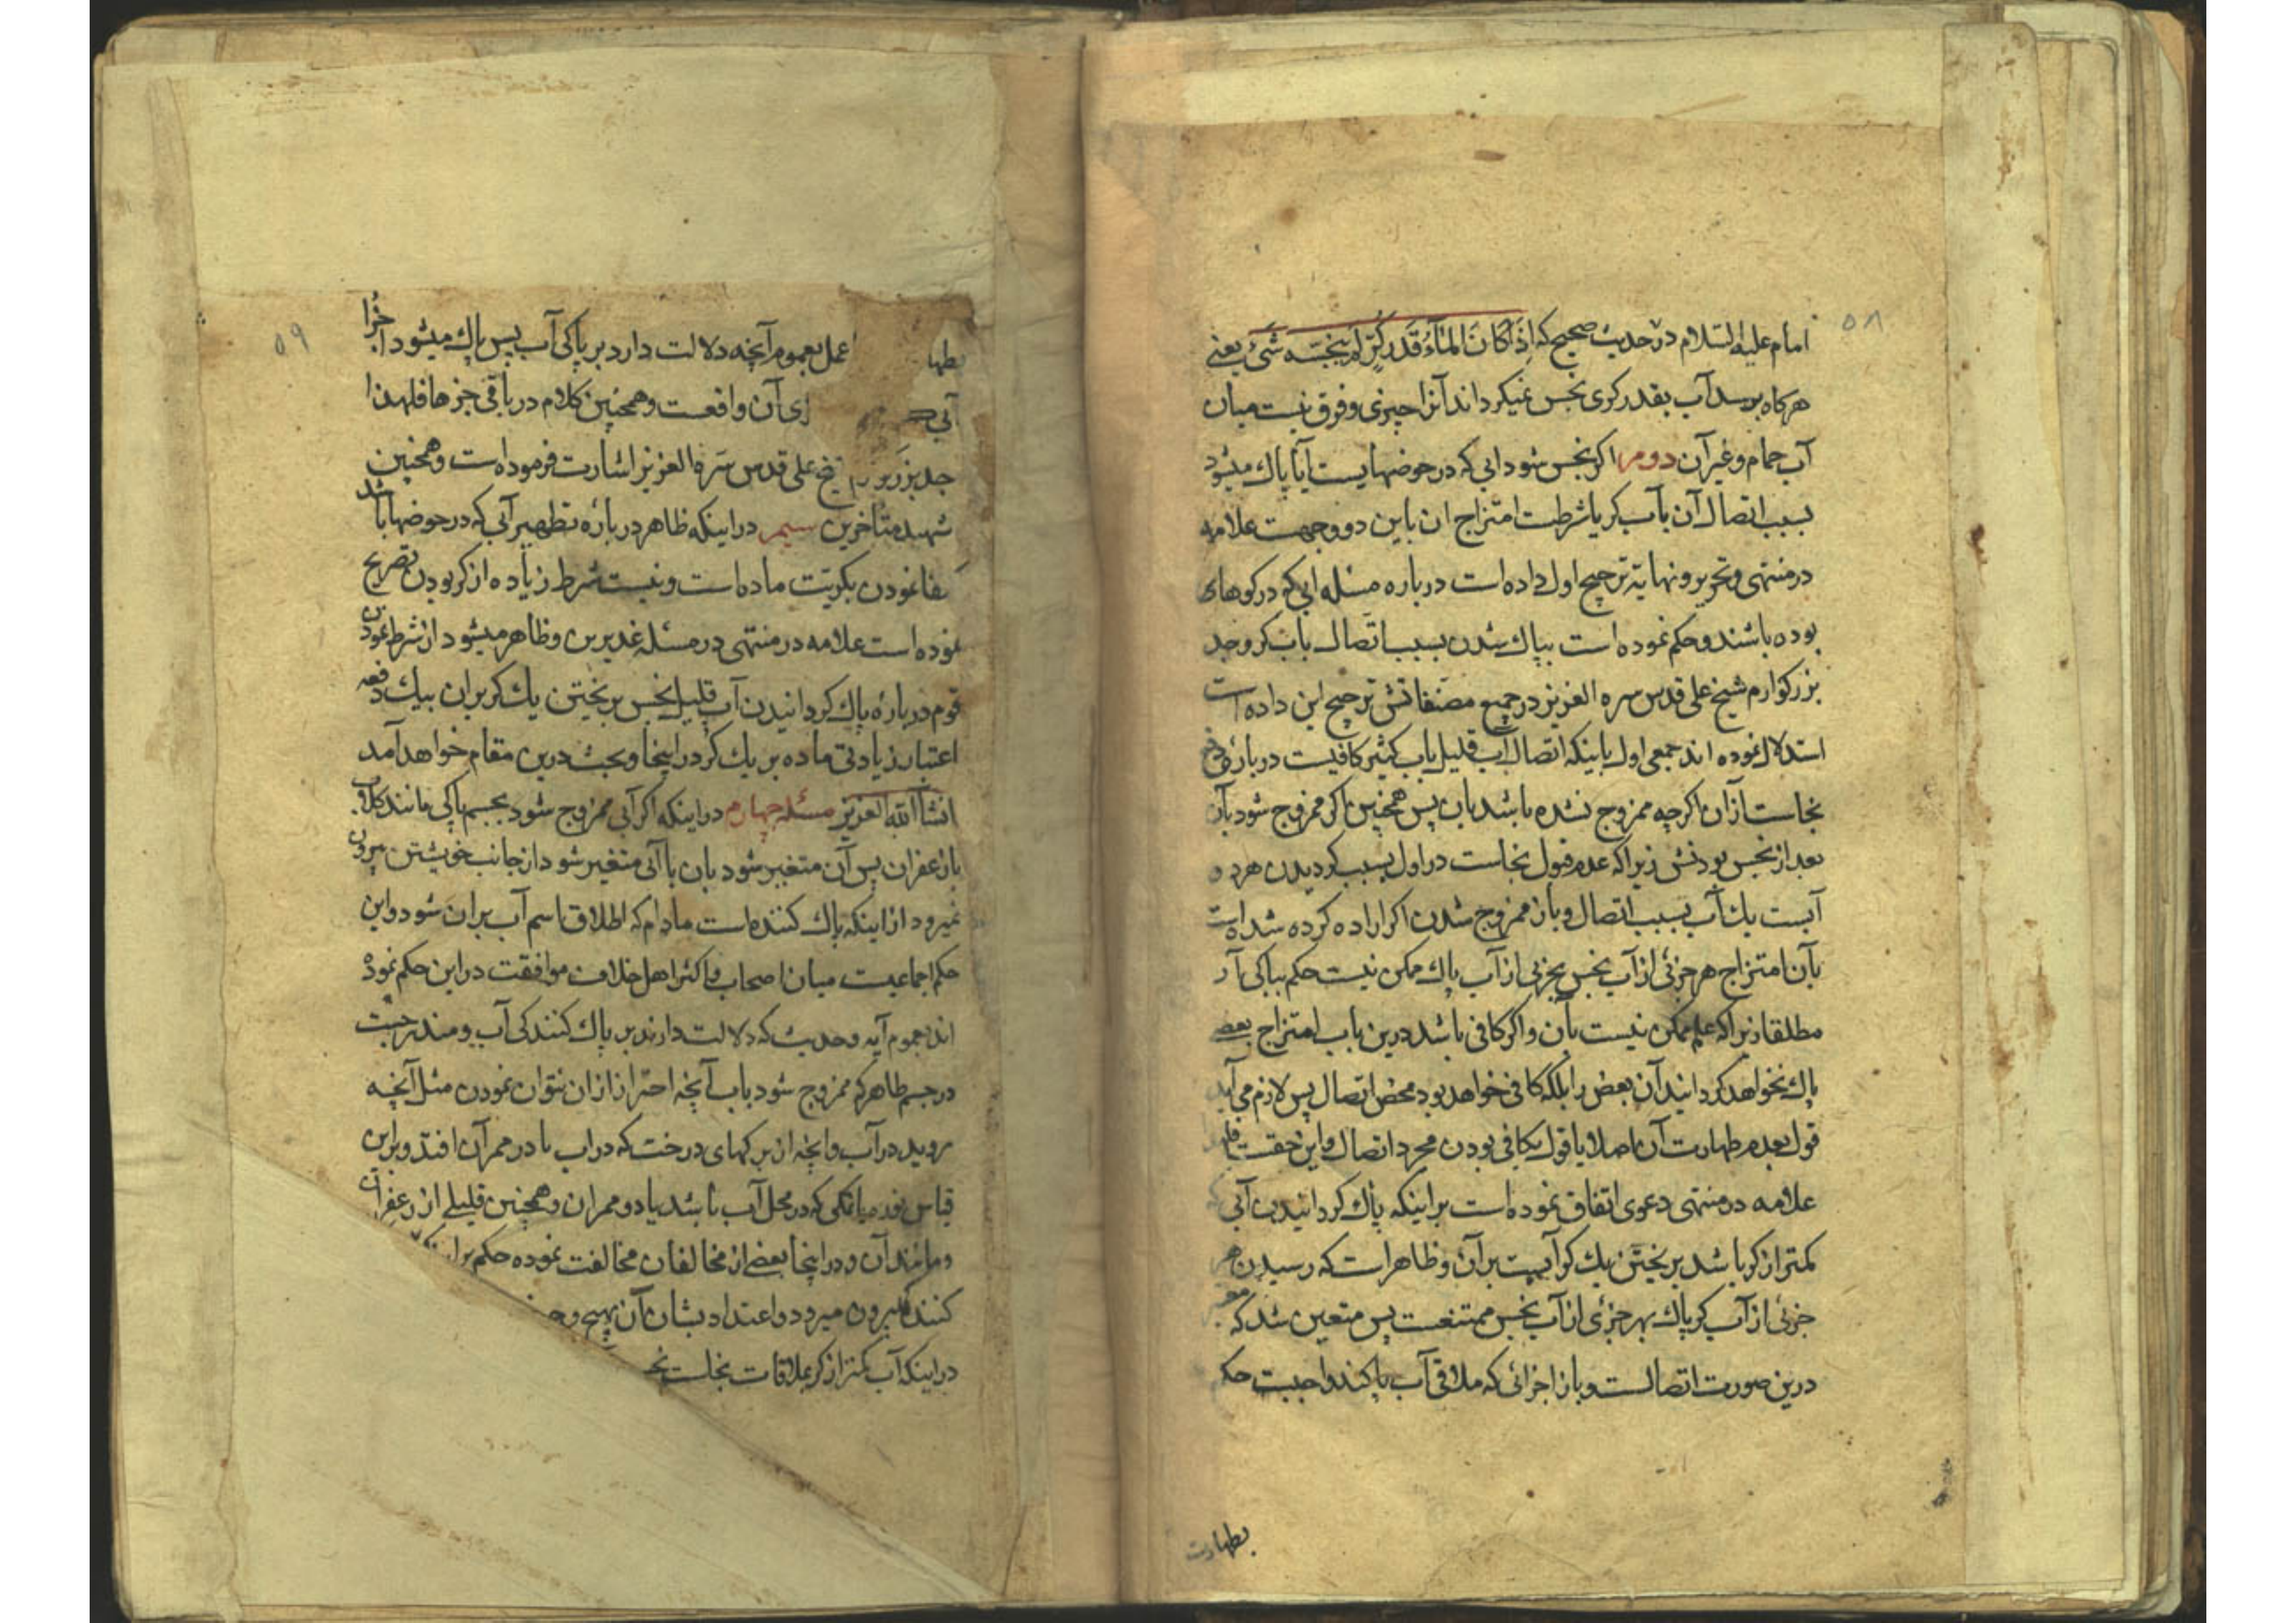 ۵۸
امام علیه السلام در حدیث صحیح که اِذَا کَانَ المَآءُ قَدرَ کُرٍّ لَم یُنَجِّسه شَیئٌ یعنی
هرکاه برسد آب بقدر کری نجس نمیکرداند آنرا چیزی و فرق نیست میان
آب حمام و غیر آن دوم اکر نجس شود ابی که در حوضهایست آیا پاک میشود
بسبب اتصال آن بآب کر یا شرطست امتزاج ان باین دو وجهست علامه
در منتهی و تحریر و نهایة ترجیح اول داده است درباره مسئله ابی که در کوهای
بوده باشند و حکم نموده است بپاک شدن بسبب اتصال بآب کر و جد
بزرکوارم شیخ علی قدس سره العزیز در جمیع مصنفاتش ترجیح این داده است
استدلال نموده اند جمعی اول باینکه اتصال آب قلیل بآب کثیر کافیست درباره دفع
نجاست ازان اکرچه ممزوج نشده باشد بان پس همچنین اکر ممزوج شود بآن
بعد از نجس بودنش زیرا که عدم قبول نجاست در اول بسبب کردیدن هر دو
آبست یک آب بسبب اتصال و بان ممزوج شدن اکر اراده کرده شده است
بآن امتزاج هر جزئی از آب نجس بجزئی از آب پاک ممکن نیست حکم بپاکی آن
مطلقا زیرا که علم ممکن نیست بآن و اکر کافی باشد درین باب امتزاج بعض
پاک نخواهد کردانید آن بعض را بلکه کافی خواهد بود محض اتصال پس لازم می آید
قول بعدم طهارت آن اصلا یا قول بکافی بودن مجرد اتصال و این حقست
علامه در منتهی دعوی اتفاق نموده است براینکه پاک کردانیدن آبی که
کمتر از کر باشد بریختن یک کر آبیست بر آن و ظاهر است که رسیدن هر
جزئی از آب کر پاک بهر جزئی از آب نجس ممتنعست پس متعین شد که
درین صورت اتصالست و باز اجزائی که ملاقی آب پاکند واجبست حکم
بطهارت
۵۹
بطها عمل بعموم آنچه دلالت دارد بر پاکی آب پس پاک میشود اجزا
آبی ای آن واقعست و همچنین کلام در باقی جزها فلهذا
جد بزرکوارم شیخ علی قدس سره العزیز اشارت فرموده است و همچنین
شهید متاخرین سیم دراینکه ظاهر درباره تطهیر آبی که در حوضها باشد
اکتفا نمودن بکریت ماده است و نیست شرط زیاده از کر بودن تصریح
نموده است علامه در منتهی در مسئله غدیرین و ظاهر میشود از شرط نمودن
قوم درباره پاک کردانیدن آب قلیل نجس بریختن یک کر بران بیک دفعه
اعتبار زیادتی ماده بر یک کر در اینجا و بحث درین مقام خواهد آمد
انشاالله العزیز مسئله چهارم دراینکه اکر آبی ممزوج شود بجسم پاکی مانند کلاب
یا زعفران پس آن متغیر شود بان یا آبی متغیر شود از جانب خویشتن بیرون
نمیرود از اینکه پاک کننده است مادام که اطلاق اسم آب بران شود و این
حکم اجماعیست میان اصحاب و اکثر اهل خلاف موافقت در این حکم نموده
اند بعموم آیه و حدیث که دلالت دارند بر پاک کنندکی آب و مندرجست
در جسم طاهر که ممزوج شود بآب آنچه احتراز ازان نتوان نمودن مثل آنچه
روید در آب و انچه از برکهای درخت که در اب یا در ممر آن افتد و براین
قیاس نوره یا نمکی که در محل آب باشد یا در ممران و همچنین قلیلے از زعفران
و مانند آن و در اینجا بعضے از مخالفان مخالفت نموده حکم براینکه
کنندکی بیرون میرود و اعتداد بشان آن بهیچ وجه
دراینکه آب کمتر از کر بملاقات نجاست